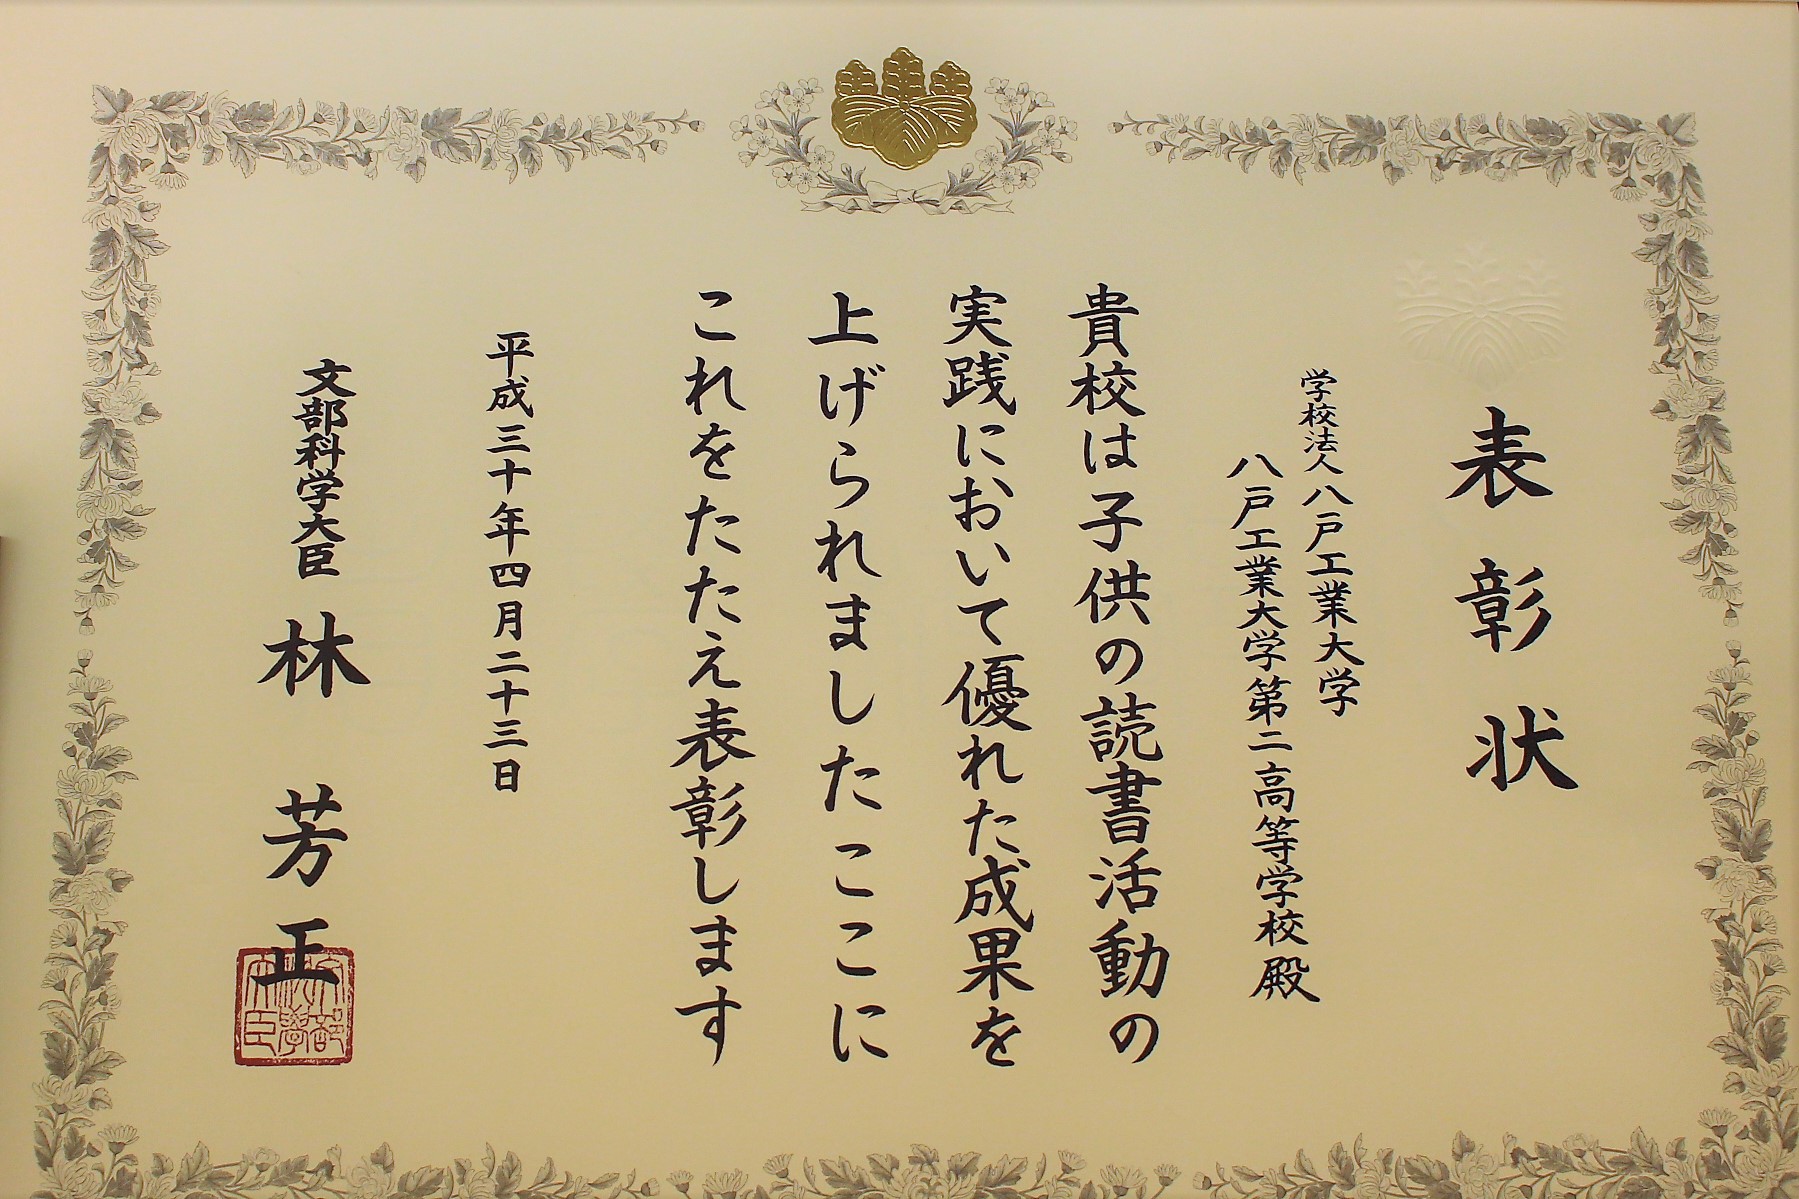 表彰状
学校法人八戸工業大学
八戸工業大学第二高等学校殿
貴校は子供の読書活動の
実践において優れた成果を
上げられましたここに
これをたたえ表彰します
平成三十年四月二十三日
文部科学大臣 林芳正